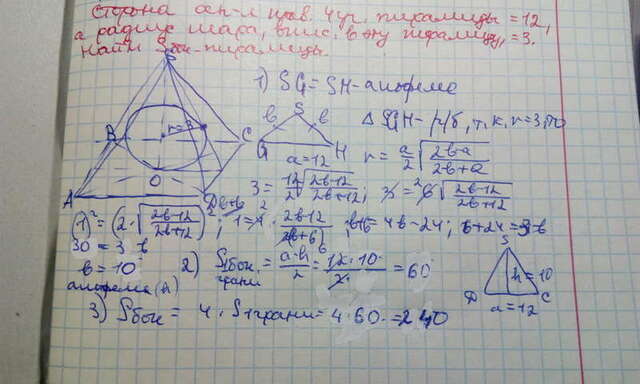 Сторона осн-я прав. 4уг. пирамиды = 12,
а радиус шара, впис. в эту пирамиду, = 3.
Найти Sбок пирамиды.
1) SG = SH - апофема
S
B
r=3
C
A
O
D
S
b b
G H
a=12
Δ SGH - р/б, т. к. r=3, то
r = a/2 √(2b-a)/(2b+a)
3 = 12/2 √(2b-12)/(2b+12); 3 = 6 √(2b-12)/(2b+12)
(1)² = (2·√(2b-12)/(2b+12))²; 1 = 4·(2b-12)/(2b+6); b+6 = 4b-24; 6+24=3b
30 = 3 b
b = 10
апофема (h)
2) S1бок. грани = a·h/2 = 12·10/2 = 60
S
h=10
D C
a=12
3) Sбок = 4·S1грани = 4·60 = 240